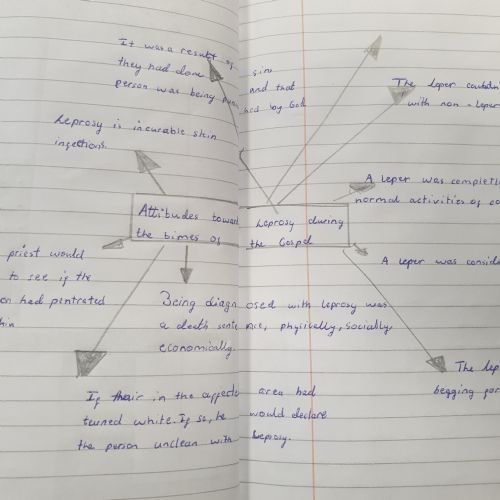 It was a result of sins
they had done and that
person was being hed by God
Leprosy is incurable skin
injections.
The leper
with non - leper
A leper was
normal activities of
Attitudes towar Leprosy during
the bimes of the Gospel
A leper was
priest would
to see if the
had pentrated
Being diagnosed with leprosy was
a death sentence, physically, socially,
economically.
The
begging
If thair in the area had
turned white. If so, he would declare
the person unclean with leprosy.